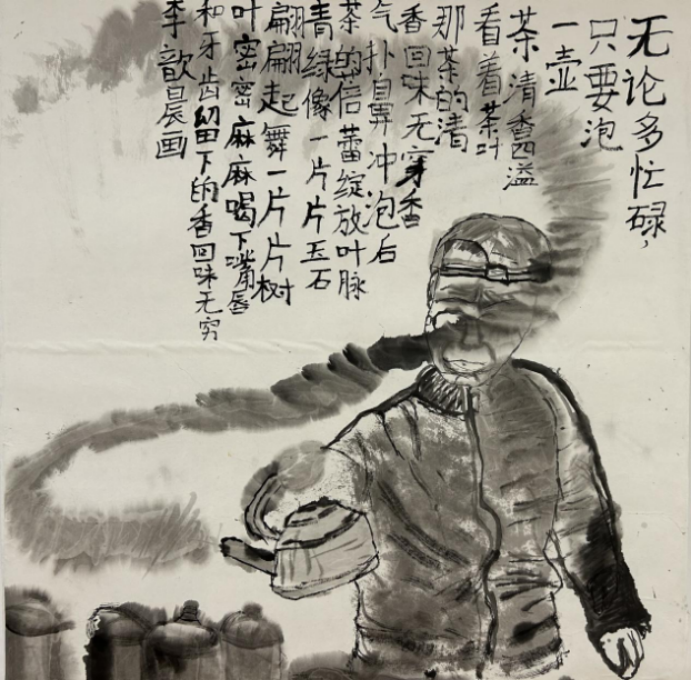 无论多忙碌，
只要泡
一壶
茶清香四溢
看着茶叶
那茶的清
香回味无穿香
气扑鼻冲泡后
茶的蓓蕾绽放叶脉
绿像一片片玉石
翩翩起舞一片片树
叶密密麻麻喝下嘴唇
和牙齿留下的香回味无穷
李歆晨画